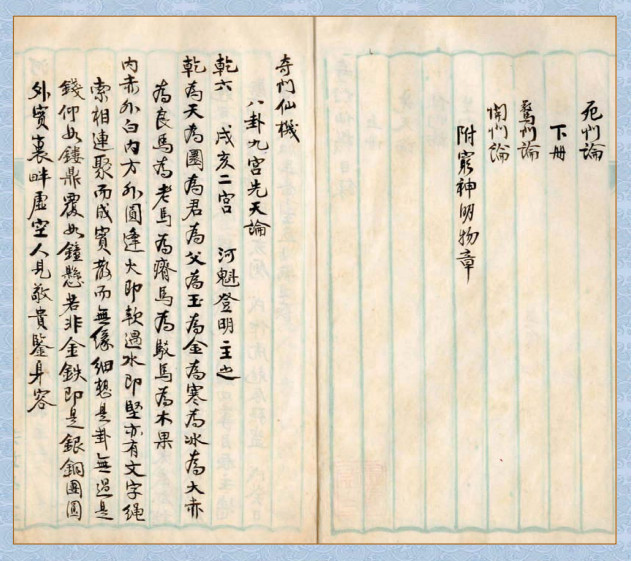 死门論
下册
驚门論
開门論
附窮神明物章
奇门仙機
八卦九宫先天論
乾六 戌亥二宫 河魁登明主之
乾為天為圜為君為父為玉為金為寒為冰為大赤
為良馬為老馬為瘠馬為駁馬為木果
内赤外白内方外圓逢火即軟遇水即堅亦有文字繩
索相連聚而成寶散而無像細想是卦無過是
錢仰如鏤鼎覆如鐘懸若非金鉄即是銀銅團圓
外實裏畔虚空人見敬貴鑒身容